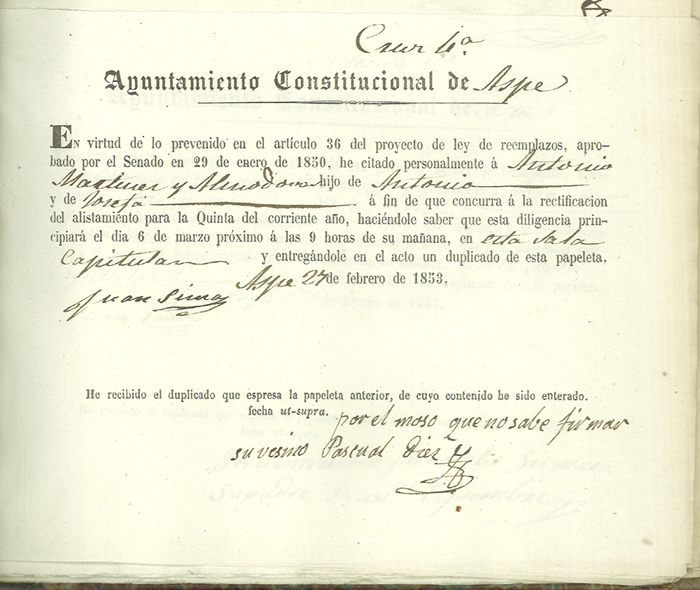 Cruz 4.ª
Ayuntamiento Constitucional de Aspe
En virtud de lo prevenido en el artículo 36 del proyecto de ley de reemplazos, apro-
bado por el Senado en 29 de enero de 1850, he citado personalmente á Antonio
Martines y Almodova hijo de Antonio
y de Josefa á fin de que concurra á la rectificacion
del alistamiento para la Quinta del corriente año, haciéndole saber que esta diligencia prin-
cipiará el dia 6 de marzo próximo á las 9 horas de su mañana, en esta Sala
Capitular y entregándole en el acto un duplicado de esta papeleta.
Aspe 27 de febrero de 1853.
Juan
He recibido el duplicado que espresa la papeleta anterior, de cuyo contenido he sido enterado.
fecha ut-supra. por el moso que no sabe firmar
su vesino Pascual Diez